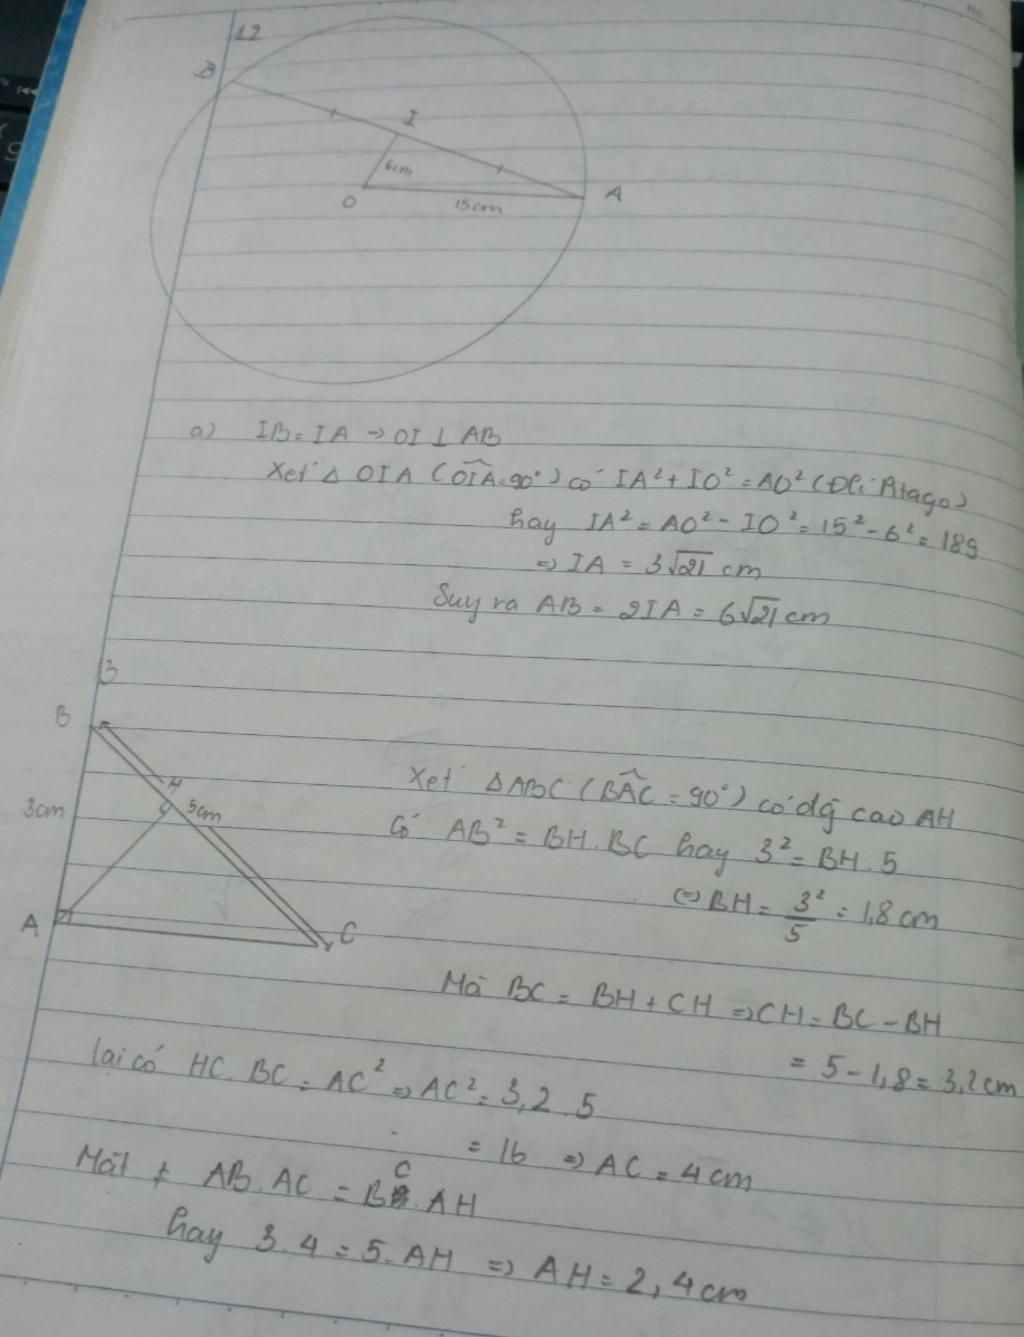 No.
12
B
I
6cm
O
15cm
A
a) IB = IA → OI ⊥ AB
Xét Δ OIA (OIA = 90°) có IA² + IO² = AO² (Đlí Pitago)
hay IA² = AO² - IO² = 15² - 6² = 189
⇒ IA = 3√21 cm
Suy ra AB = 2IA = 6√21 cm
3
B
H
3cm
5cm
A
C
Xét ΔABC (BAC = 90°) có đg cao AH
Có AB² = BH.BC hay 3² = BH.5
⇔ BH = 3²/5 = 1,8 cm
Mà BC = BH + CH ⇒ CH = BC - BH
= 5 - 1,8 = 3,2 cm
lại có HC.BC = AC² ⇒ AC² = 3,2.5
= 16 ⇒ AC = 4 cm
Mặt ≠ AB.AC = BC.AH
hay 3.4 = 5.AH ⇒ AH = 2,4 cm